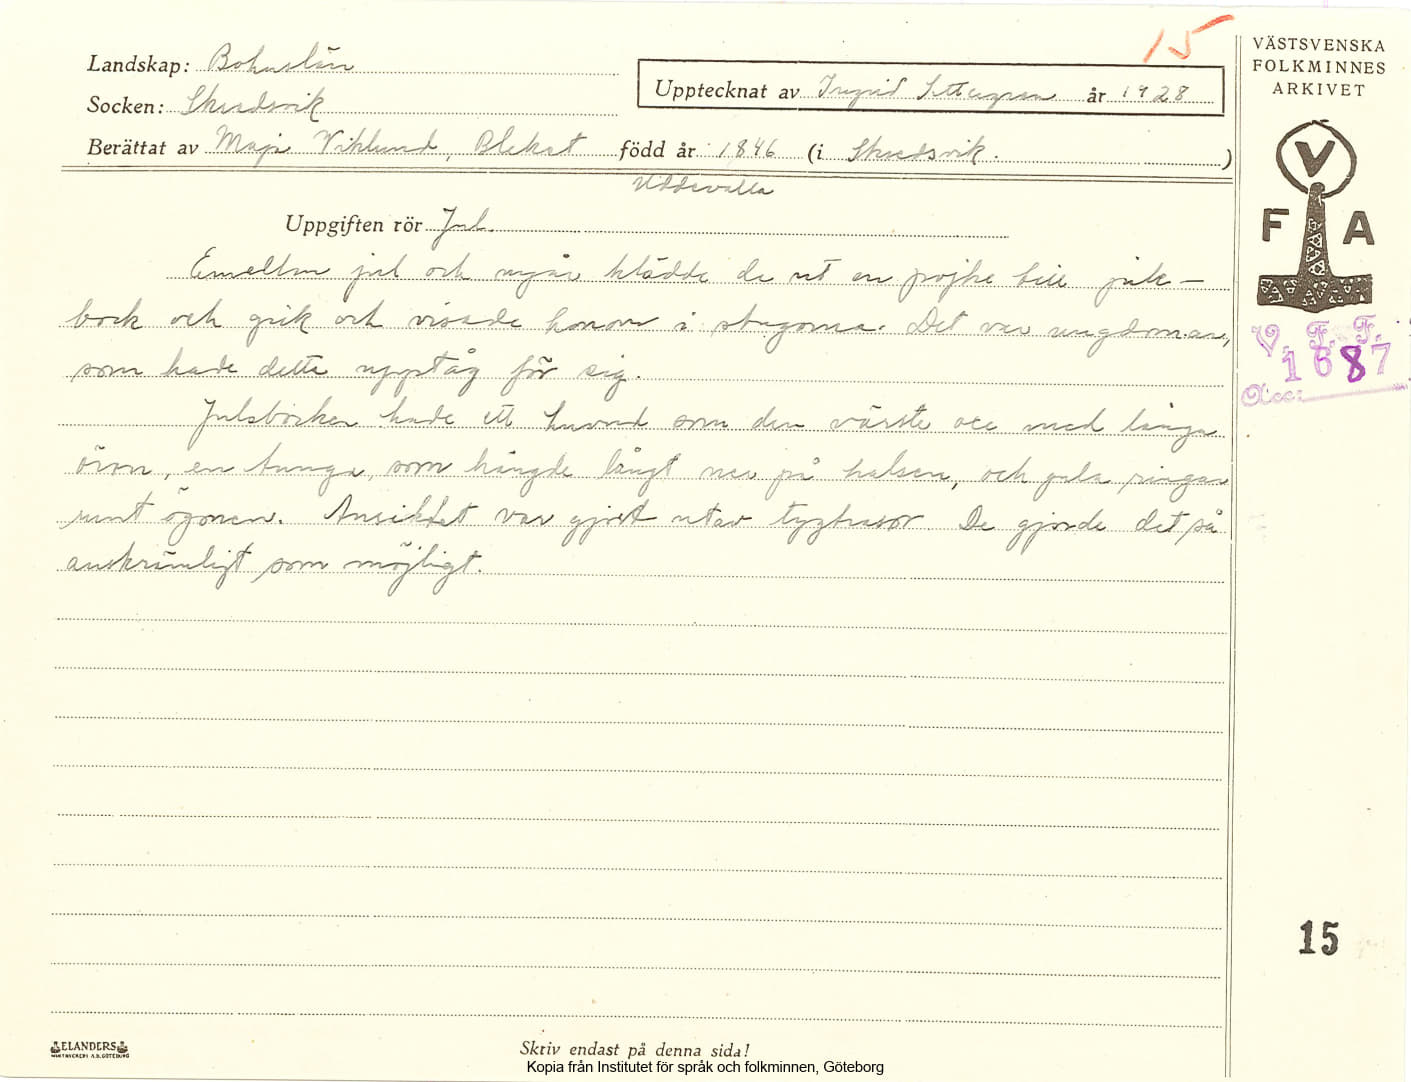 15
VÄSTSVENSKA
FOLKMINNES
ARKIVET
Landskap: Bohuslän
Socken: Skredsvik
Upptecknat av Ingrid år 1928
Berättat av Maja Viklund, Blekat född år 1846 (i Skredsvik.)
Uddevalla
Uppgiften rör Jul.
V
F A
Emellan jul och nyår klädde de ut en pojke till jule-
bock och gick och visade honom i stugorna. Det var ungdomar,
som hade detta upptåg för sig.
Julabocken hade ett huvud som den värste oxe med långa
öron, en tunga, som hängde långt ner på halsen, och gula ringar
runt ögonen. Ansiktet var gjort utav tygtrasor De gjorde det så
anskrämligt som möjligt.
V. F. F.
1687
Acc:
15
ELANDERS
Skriv endast på denna sida!
Kopia från Institutet för språk och folkminnen, Göteborg